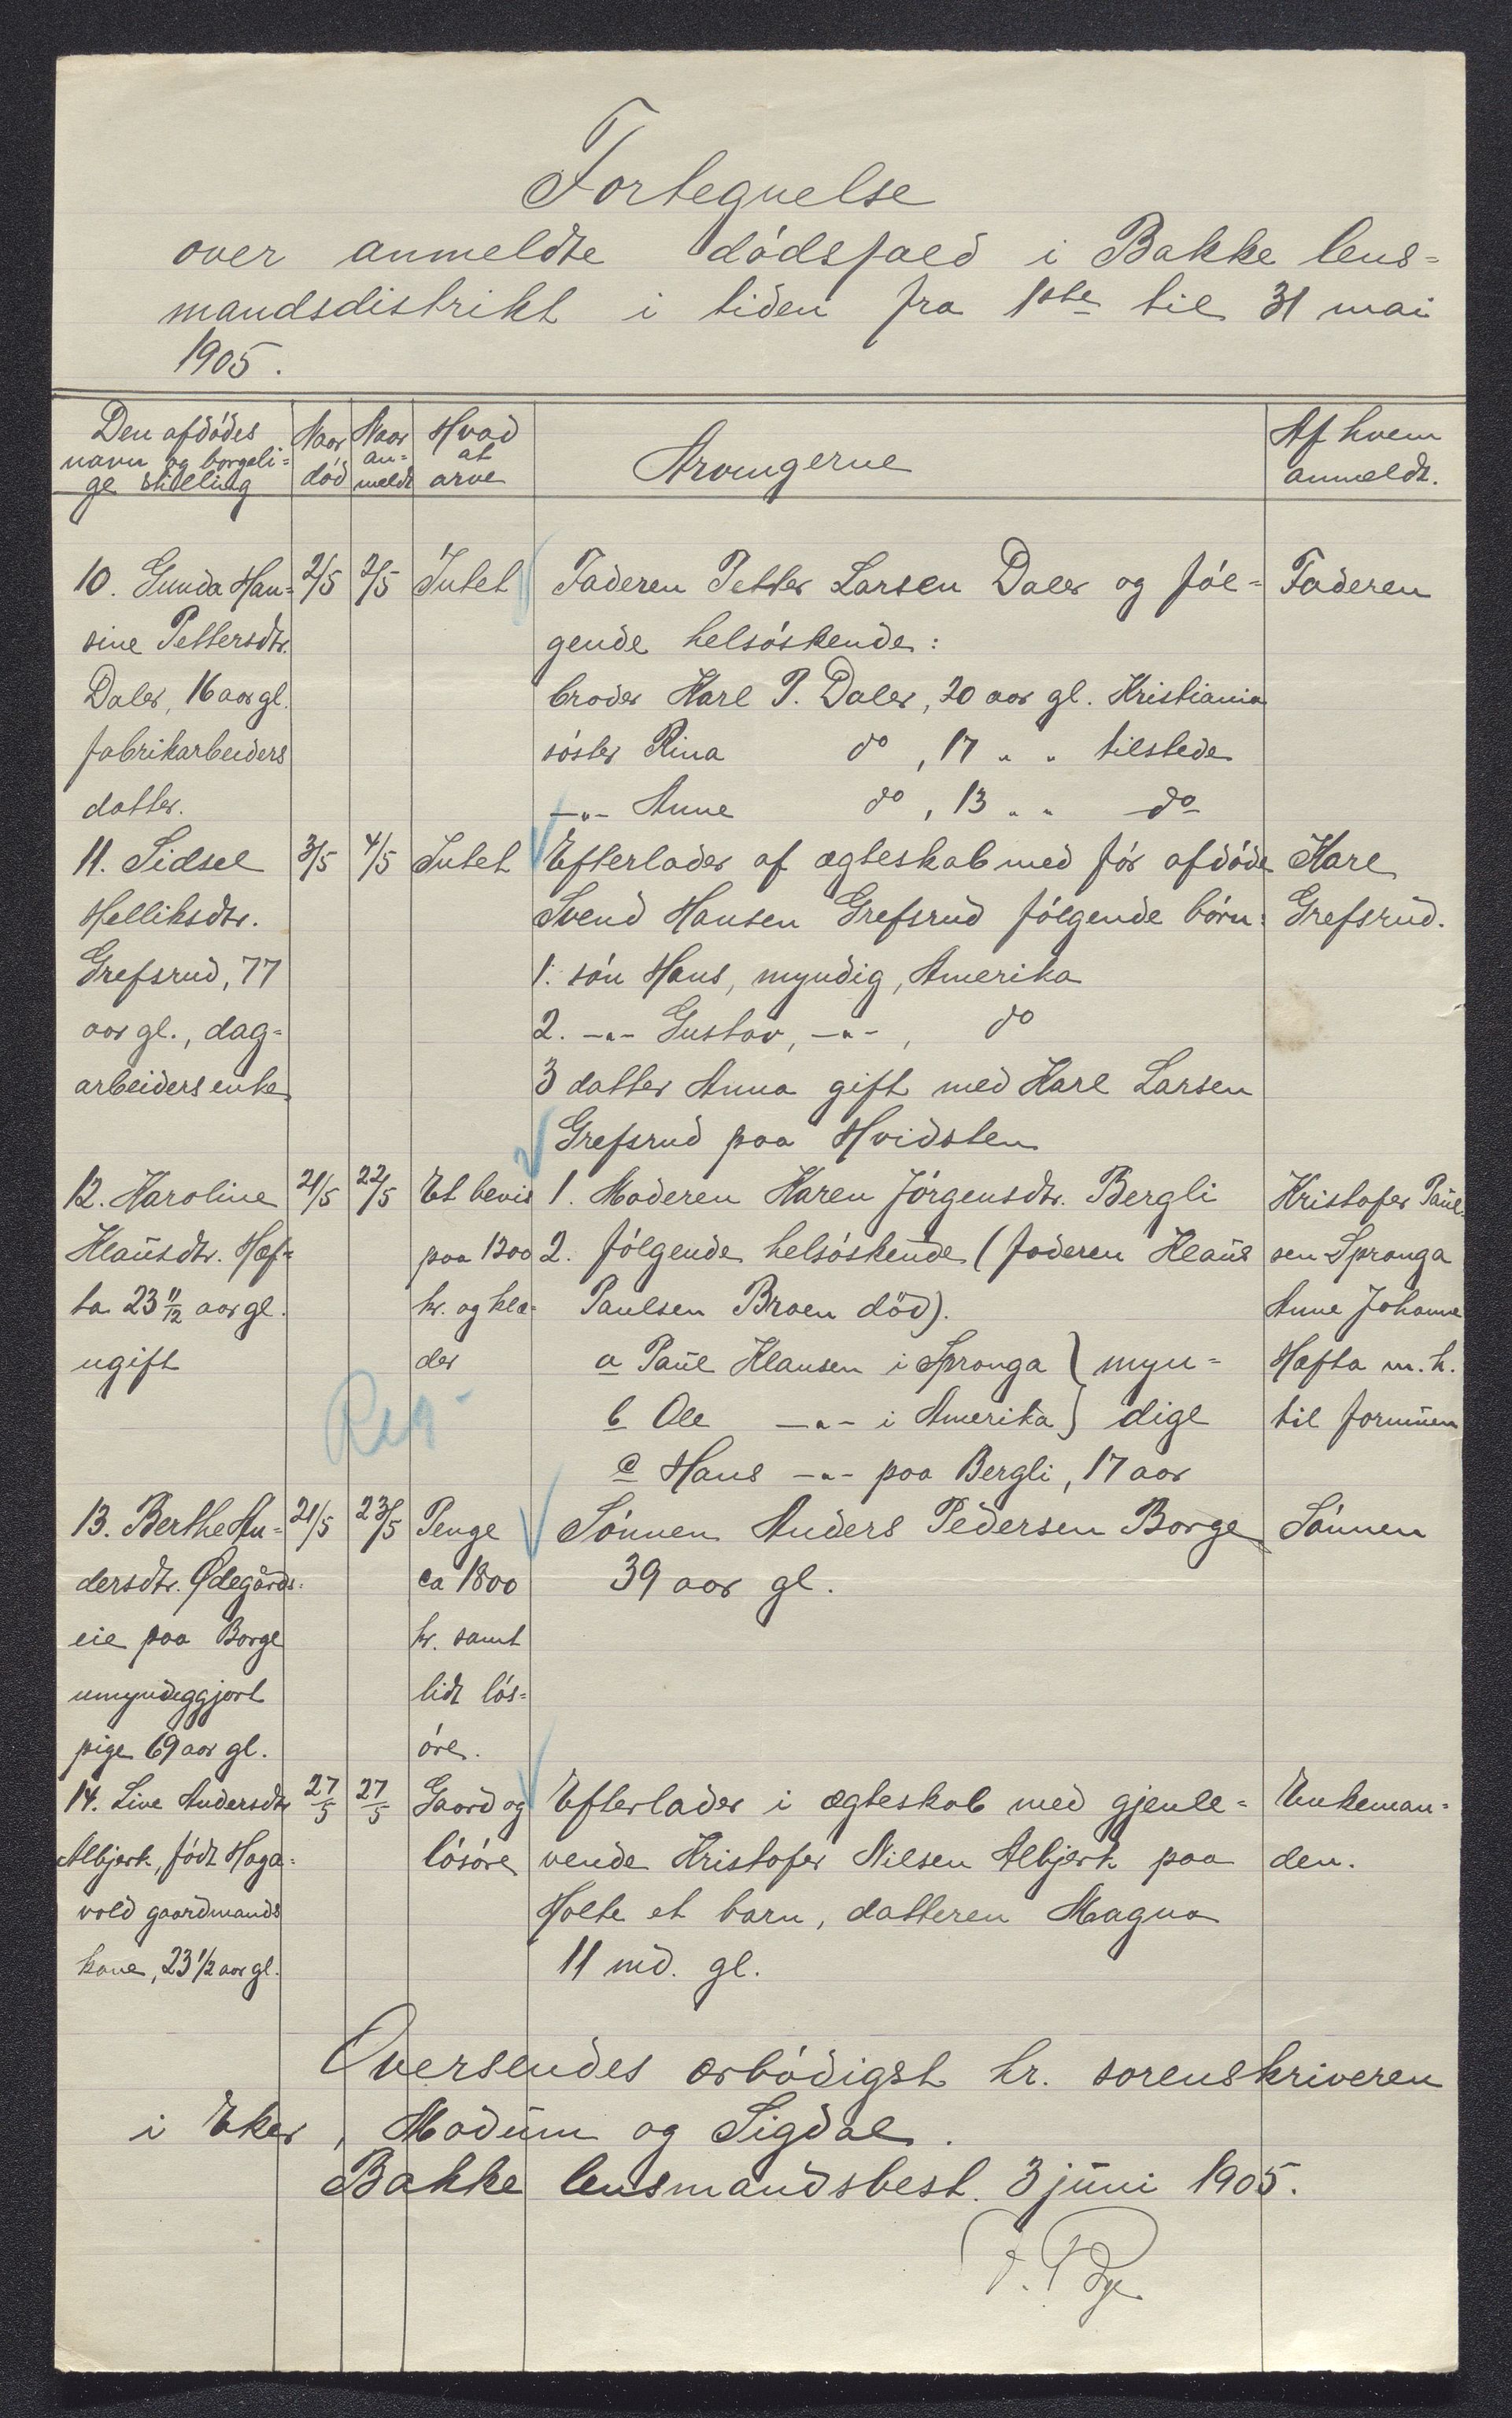 Fortegnelse
over anmeldte dödsfald i Bakke lens=
mandsdistrikt i tiden fra 1ste til 31 mai
1905.
Den afdödes
navn og borgeli=
ge stilling
Naar
död
Naar
an=
meldt
Hvad
at
arve
Arvingerne
Af hvem
anmeldt.
10. Gunda Han=
sine Pettersdtr.
Daler, 16 aar gl.
fabrikarbeiders
datter.
2/5
2/5
Intet
Faderen Petter Larsen Daler og föl=
gende helsöskende:
broder Karl P. Daler, 20 aar gl. Kristiania
söster Rina do, 17 " " tilstede
—"— Anne do, 13 " " do
Faderen
11. Sidsel
Helliksdtr.
Grefsrud, 77
aar gl., dag=
arbeiders enke
3/5
4/5
Intet
Efterlader af ægteskab med för afdöde
Svend Hansen Grefsrud fölgende börn:
1. sön Hans, myndig, Amerika
2. —"— Gustav, —"—, do
3 datter Anna gift med Karl Larsen
Grefsrud paa Hvidsten
Karl
Grefsrud.
12. Karoline
Klausdtr. Hæf=
ta 23 11/12 aar gl.
ugift
21/5
22/5
Et bevis
paa 1200
kr. og klæ=
der
1. Moderen Karen Jörgensdtr. Bergli
2. fölgende helsöskende (faderen Klaus
Paulsen Braen död).
a Paul Klausen i Spronga } myn=
b Ole —"— i Amerika } dige
c Hans —"— paa Bergli, 17 aar
Kristofer Paul=
sen Spronga
Anne Johanne
Hæfta m. h.
til formuen
Reg
13. Berthe An=
dersdtr. Ødegårds=
eie paa Borge
umyndiggjort
pige 69 aar gl.
21/5
23/5
Penge
ca 1800
kr. samt
lidt lös=
öre.
Sönnen Anders Pedersen Borge
39 aar gl.
Sönnen
14. Live Andersdtr
Albjerk, född Haga=
vold gaardmands
kone, 23 1/2 aar gl.
27/5
27/5
Gaard og
lösöre
Efterlader i ægteskab med gjenle=
vende Kristofer Nilsen Albjerk paa
Holte et barn, datteren Magna
11 md. gl.
Enkeman=
den.
Oversendes ærbödigst hr. sorenskriveren
i Eker, Modum og Sigdal.
Bakke lensmandsbest. 3 juni 1905.